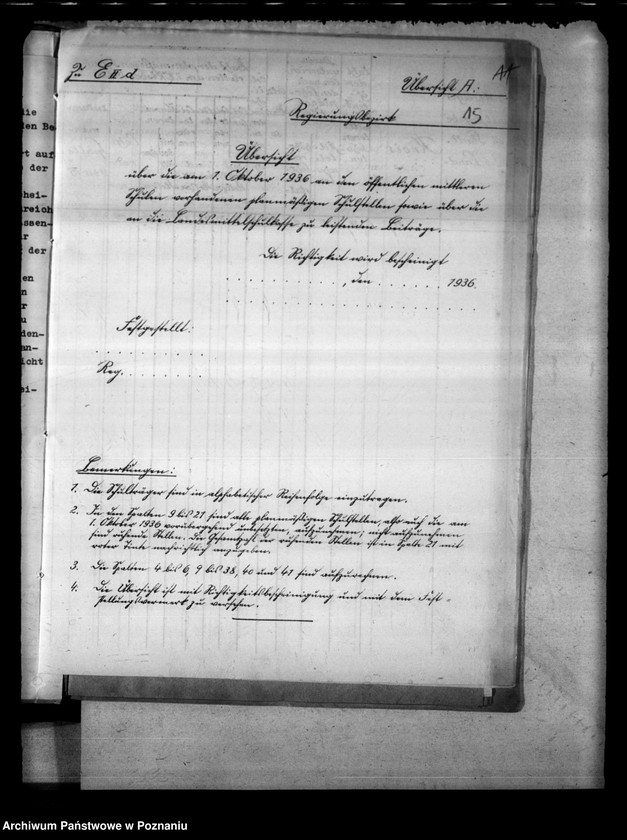 Zu E II d
Übersicht A.:
15
Regierungsbezirk
Übersicht
über die am 1. Oktober 1936 an den öffentlichen mittleren
Schulen vorhandenen planmäßigen Schulstellen sowie über die
an die Landesmittelschulkasse zu leistenden Beiträge.
Die Richtigkeit wird bescheinigt
. . . . . . . . . . . . , den . . . . . . . 1936.
Festgestellt:
. . . . . . . . . .
Reg. . . . . . . . .
Bemerkungen:
1. Die Schulträger sind in alphabetischer Reihenfolge einzutragen.
2. In den Spalten 9 bis 21 sind alle planmäßigen Schulstellen, also auch die am
1. Oktober 1936 vorübergehend unbesetzten, aufzunehmen; nicht aufzunehmen
sind ruhende Stellen. Die Gesamtzahl der ruhenden Stellen ist in Spalte 21 mit
roter Tinte nachrichtlich anzugeben.
3. Die Spalten 4 bis 6, 9 bis 38, 40 und 41 sind aufzurechnen.
4. Die Übersicht ist mit Richtigkeitsbescheinigung und mit dem Fest-
stellungsvermerk zu versehen.
die
den Be
rt auf
e der
hei-
reich
ssen-
r
g der
en
n
r
u
den-
an-
icht
ei-
Archiwum Państwowe w Poznaniu